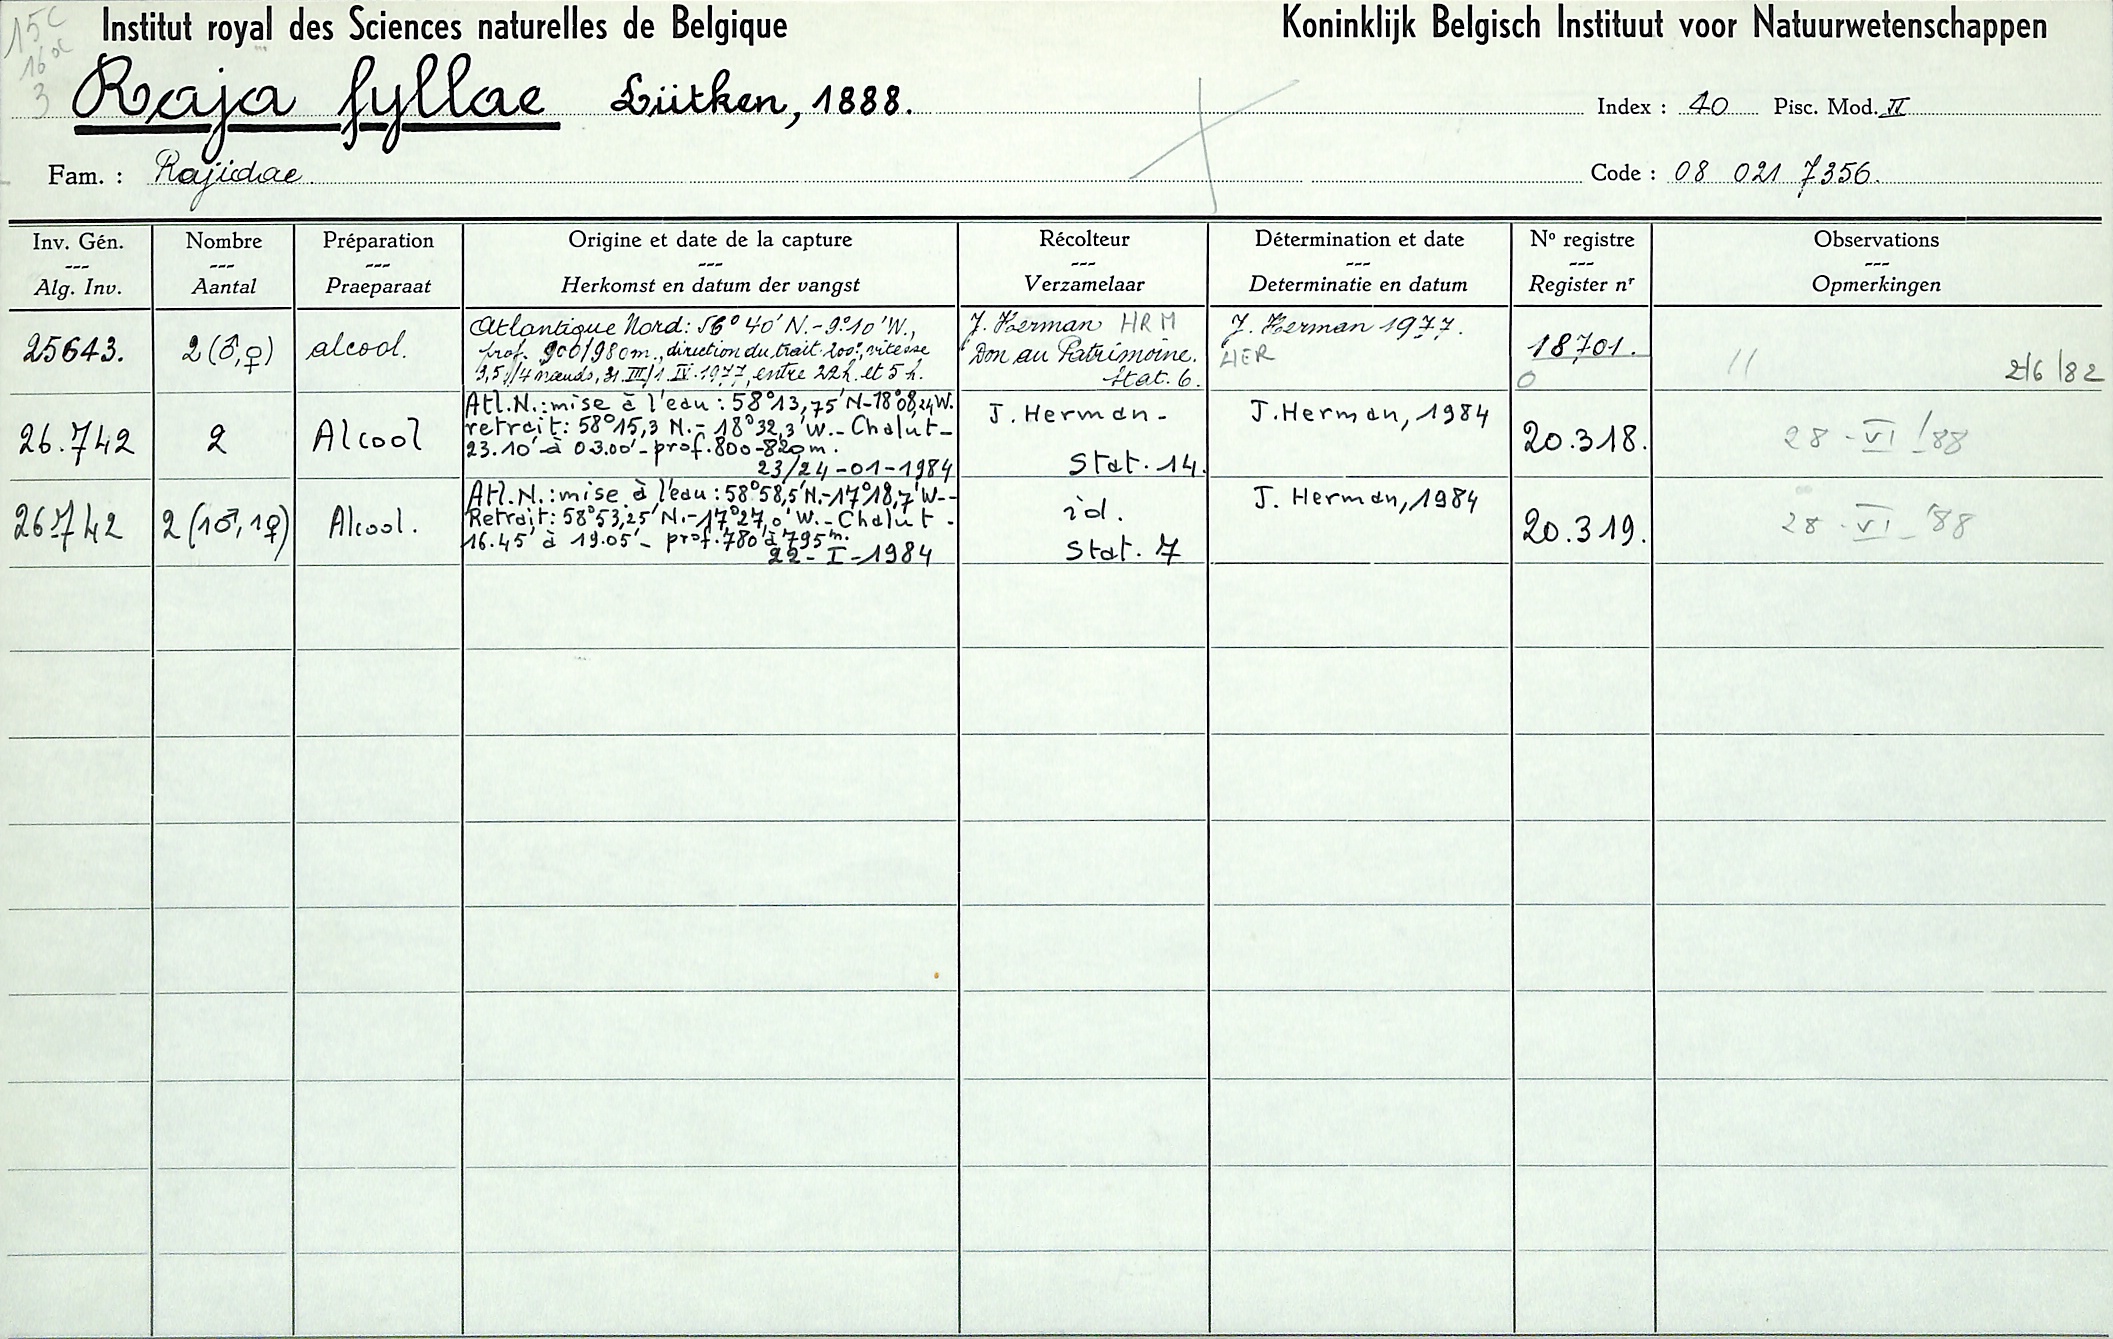 15C
16
3
Institut royal des Sciences naturelles de Belgique
Koninklijk Belgisch Instituut voor Natuurwetenschappen
Raja fyllae Lütken, 1888.
Index : 40 Pisc. Mod. II
Fam. : Rajidae.
Code : 08 021 7356.
Inv. Gén. --- Alg. Inv.
Nombre --- Aantal
Préparation --- Praeparaat
Origine et date de la capture --- Herkomst en datum der vangst
Récolteur --- Verzamelaar
Détermination et date --- Determinatie en datum
Nº registre --- Register nʳ
Observations --- Opmerkingen
25643.
2 (♂,♀)
alcool.
Atlantique Nord: 56° 40' N. - 9° 10' W.,
prof. 900/980m., direction du trait 200°, vitesse
3,5/4 noeuds, 31.III/1.IV.1977, entre 22h. et 5 h.
J. Herman HRM
Don au Patrimoine.
Stat. 6.
J. Herman 1977.
HER
18701.
0
//
2/6/82
26.742
2
Alcool
Atl.N.: mise à l'eau: 58°13,75'N-18°08,24W.
retrait: 58°15,3 N.- 18°32,3'W.- Chalut-
23.10' à 03.00'- prof. 800-820m.
23/24-01-1984
J. Herman-
Stat. 14.
J. Herman, 1984
20.318.
28-VI/88
26.742
2 (1♂, 1♀)
Alcool.
Atl.N.: mise à l'eau: 58°58,5'N.-17°18,7'W--
Retrait: 58°53,25'N.-17°27,0'W.- Chalut-
16.45' à 19.05'- prof. 780 à 795m.
22-I-1984
id.
Stat. 7
J. Herman, 1984
20.319.
28-VI-'88